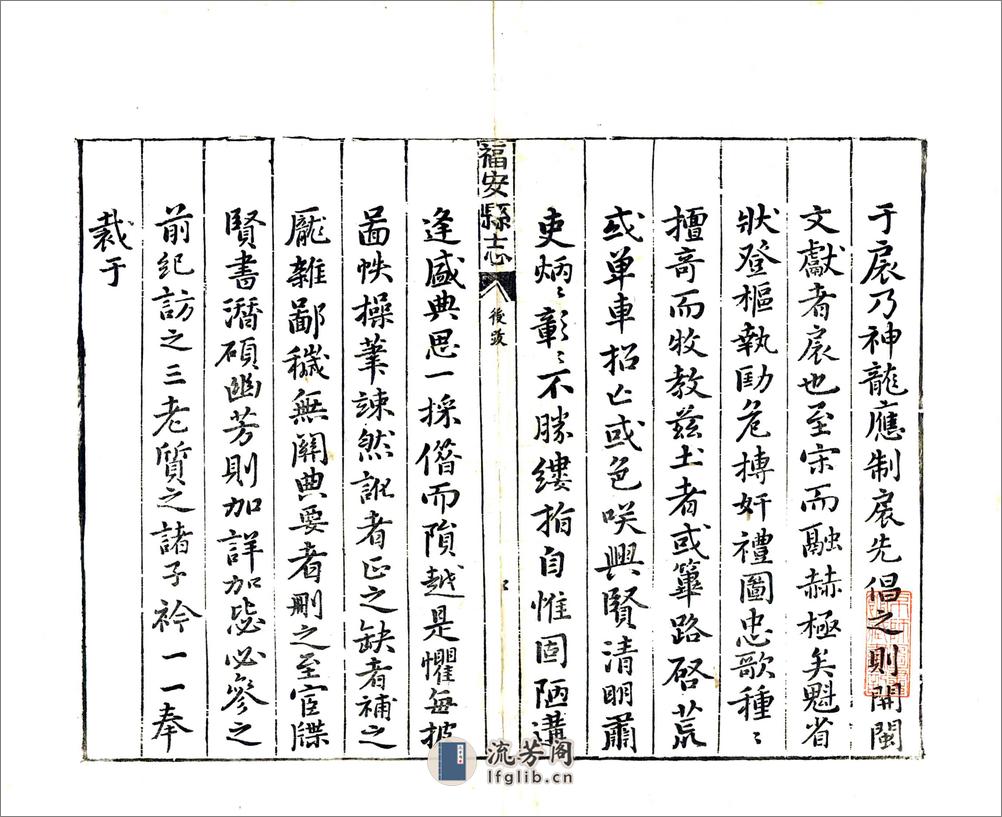 于扆乃神龍應制扆先倡之則開閩
文獻者扆也至宋而融赫極矣魁省
狀登樞執劻危摶奸禮圖忠歌種〻
擅奇而牧教茲土者或篳路啓荒
或单車招亡或色咲興賢清明肅
吏炳〻彰〻不勝縷指自惟固陋遘
福安縣志
後跋
逢盛典思一採僭而隕越是懼每披
啚帙操筆竦然訛者正之缺者補之
厖雜鄙穢無關典要者刪之至宦牒
賢書潛碩幽芳則加詳加毖必參之
前紀訪之三老質之諸子衿一一奉
裁于
流芳阁
lfglib.cn